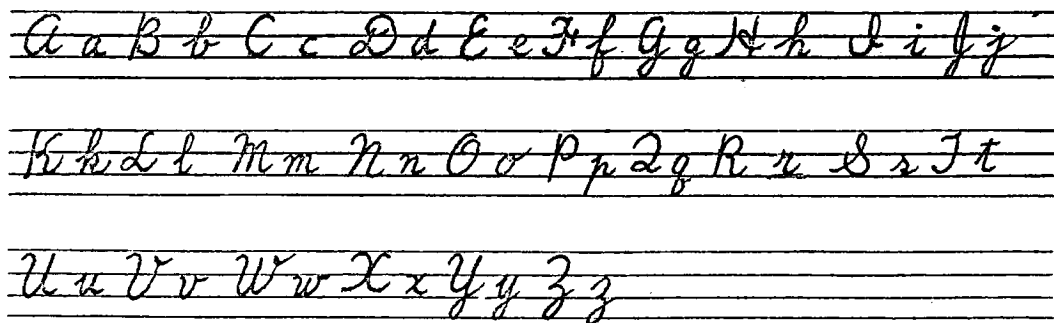 A a B b C c D d E e F f G g H h I i J j
K k L l M m N n O o P p Q q R r S s T t
U u V v W w X x Y y Z z